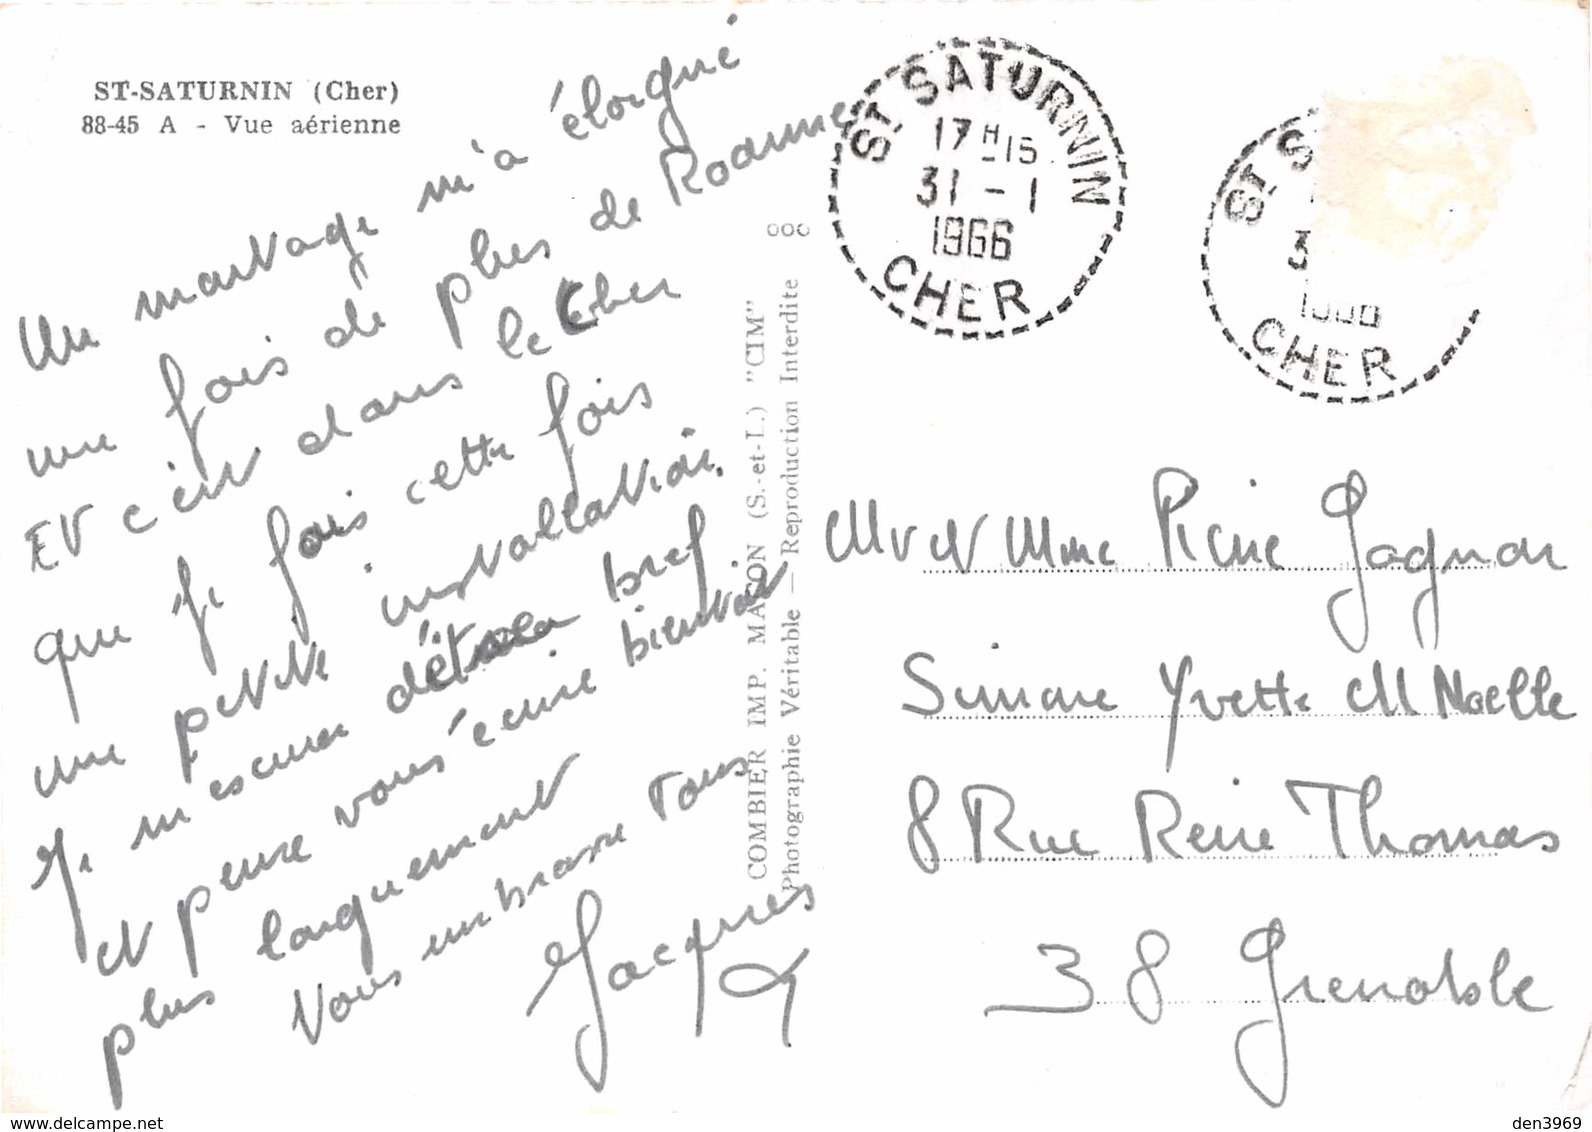 ST-SATURNIN (Cher)
88-45 A - Vue aérienne
Un mariage m'a éloigné
une fois de plus de Roanne
Et c'est dans le Cher
que je fais cette fois
une petite installation.
Je m'excuse d'être bref
et pense vous écrire bientôt
plus longuement
Vous embrasse tous
Jacques
COMBIER IMP. MACON (S.-et-L.) "CIM"
Photographie Véritable — Reproduction Interdite
ST SATURNIN
17 H 15
31 - 1
1966
CHER
ST S
3
CHER
Mr et Mme Pierre Gagnon
Simone Yvette M Noëlle
8 Rue René Thomas
38 Grenoble
den3969
www.delcampe.net